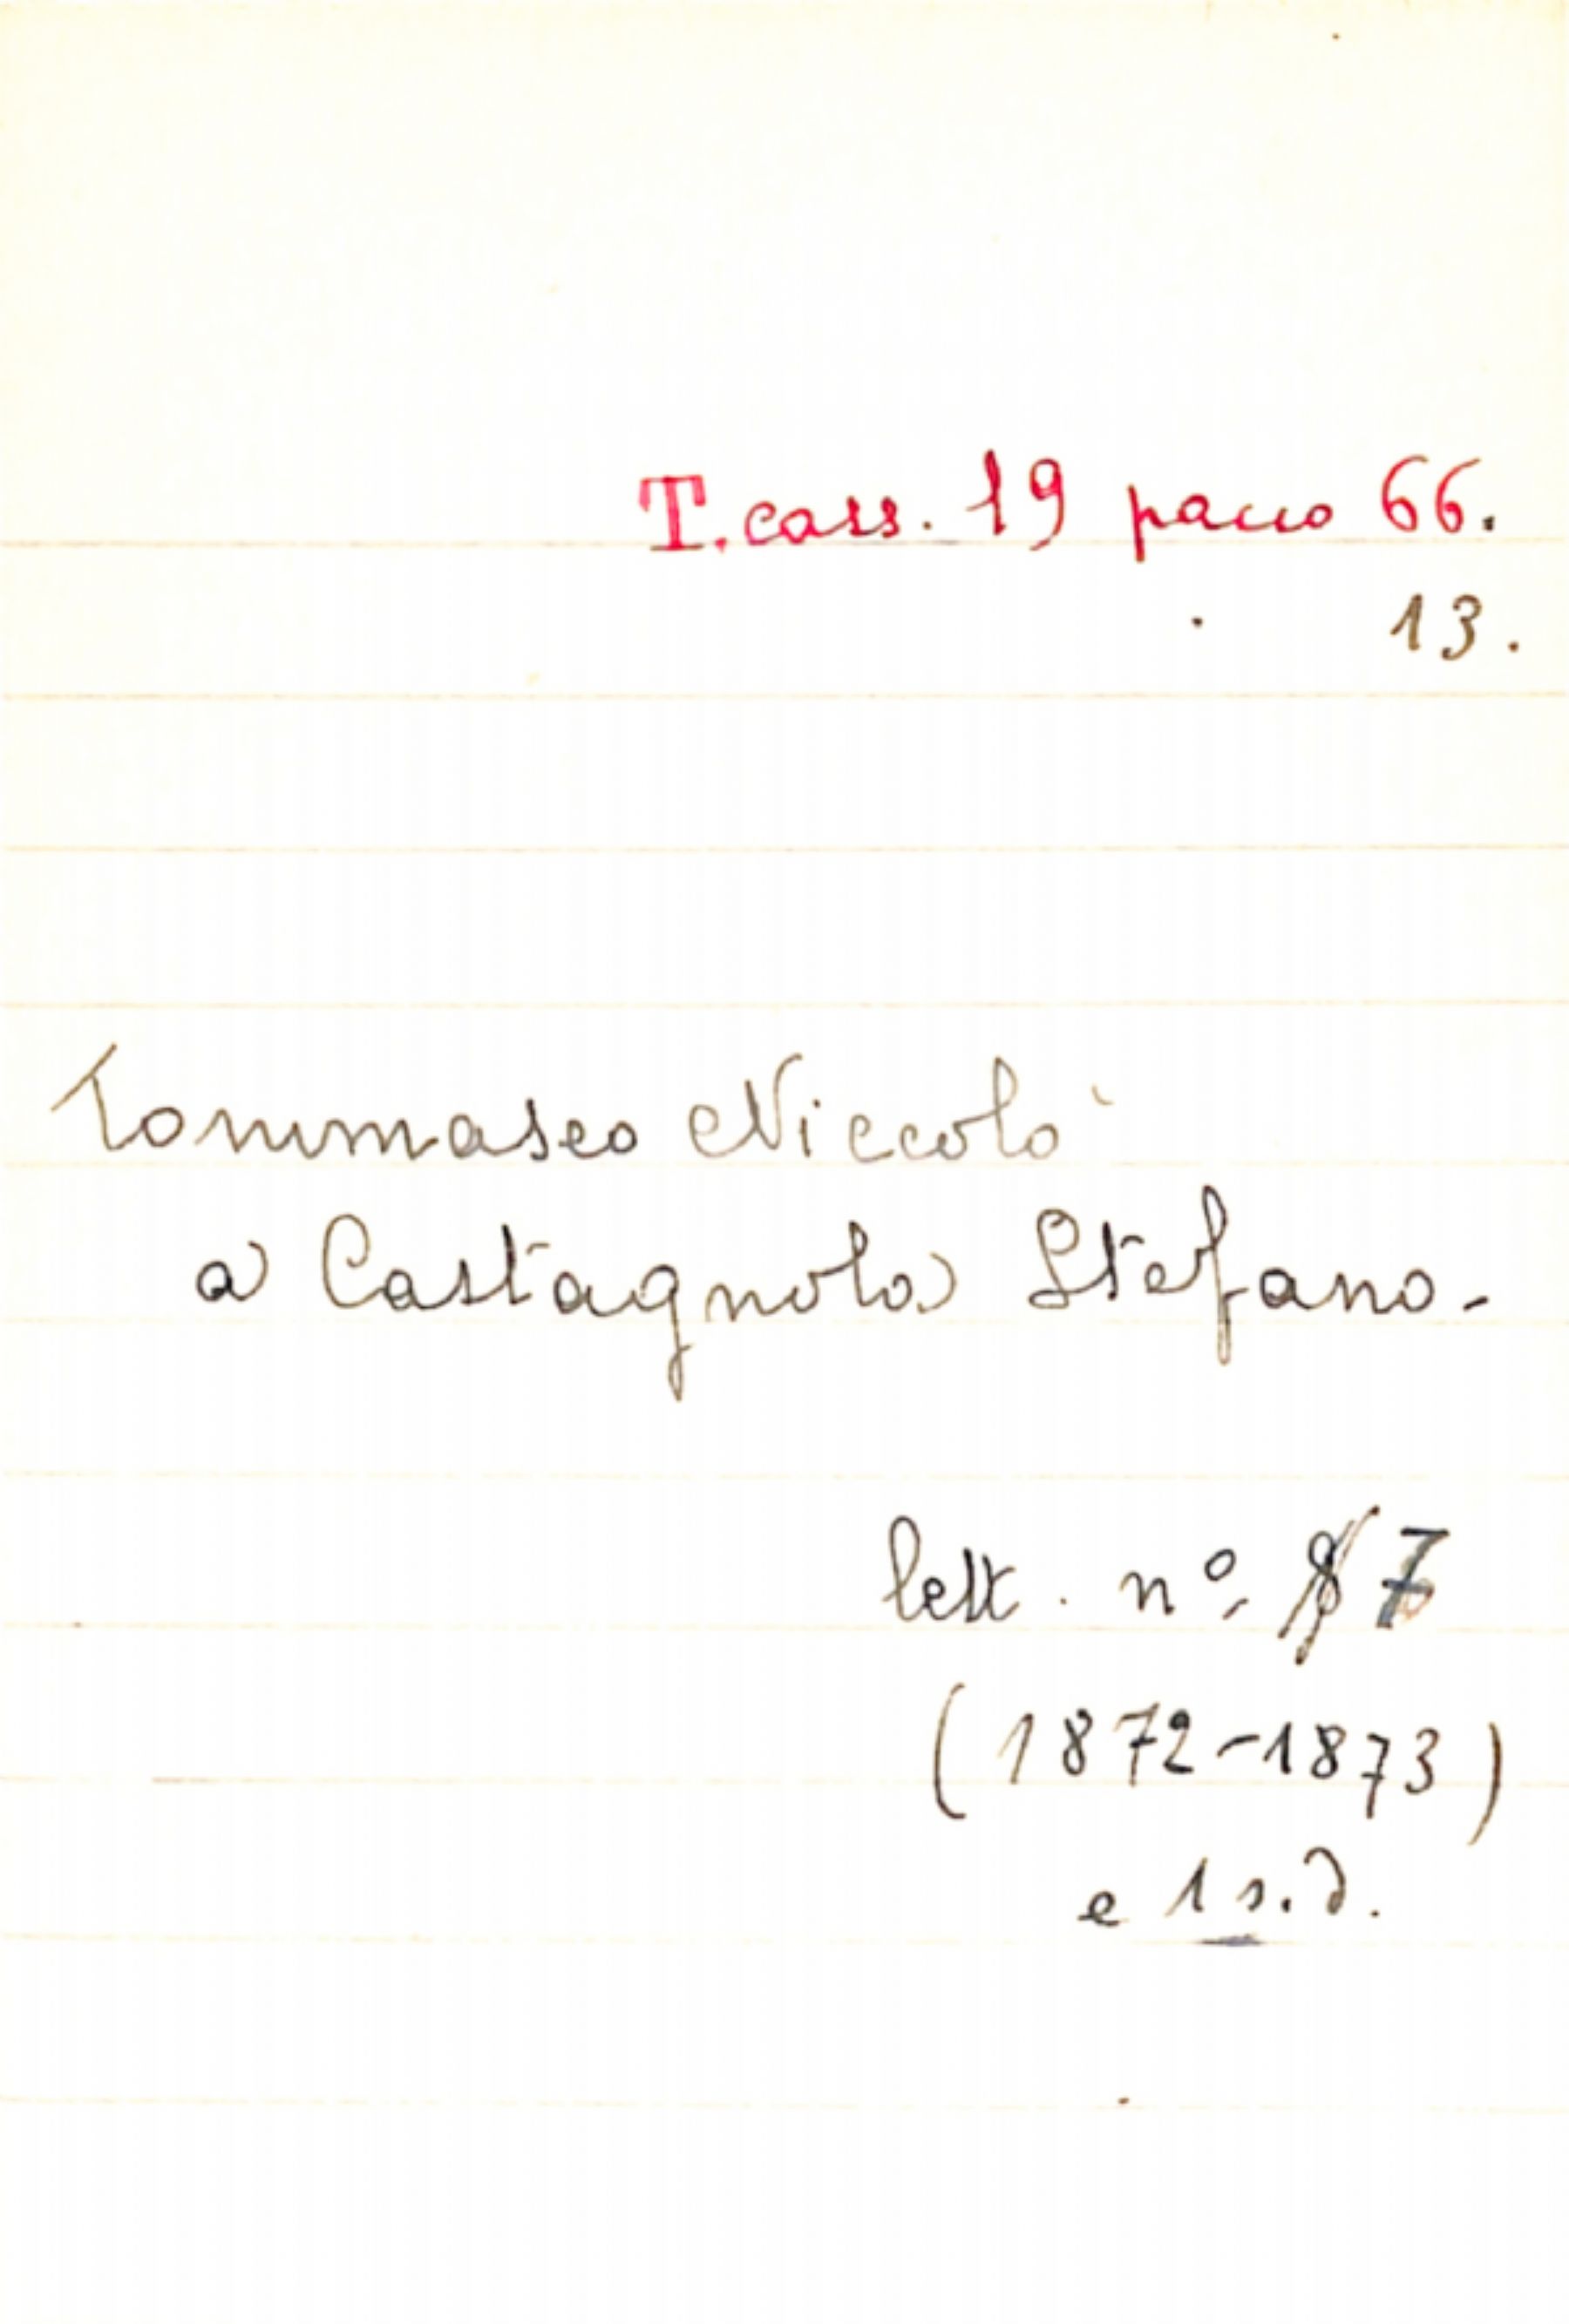 T. cass. 19 pacco 66.
13.
Tommaseo Niccolò
a Castagnola Stefano.
lett. n.º 8 7
(1872-1873)
e 1 s.d.